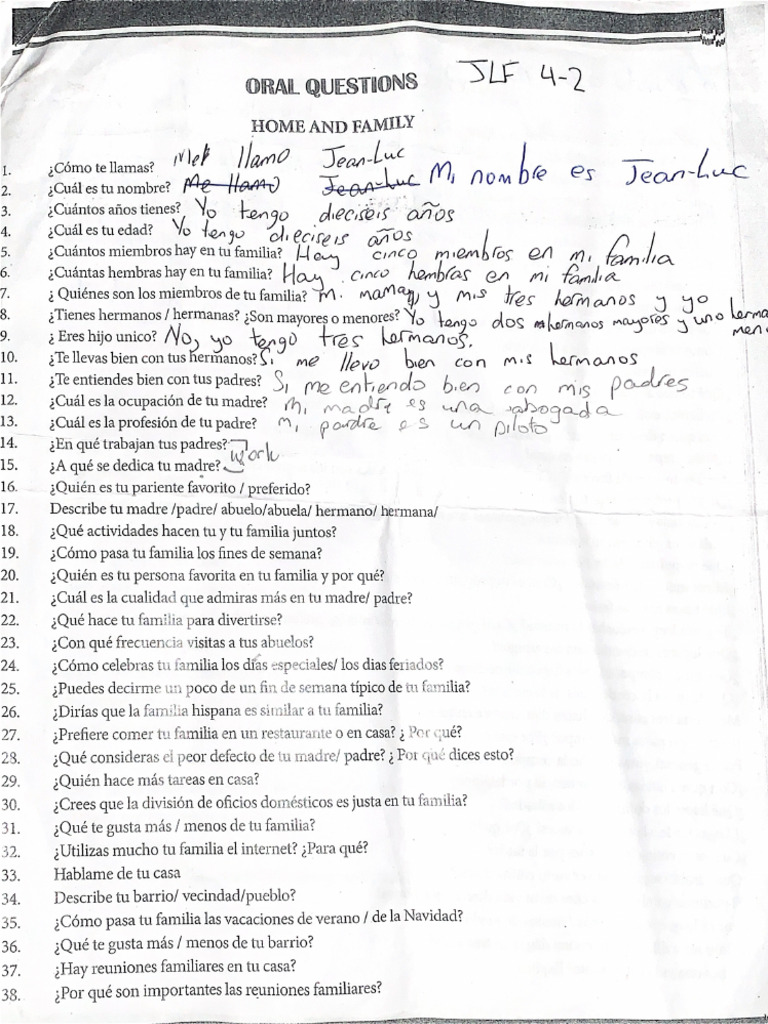 ORAL QUESTIONS JLF 4-2
HOME AND FAMILY
1. ¿Cómo te llamas? Me llamo Jean-Luc
2. ¿Cuál es tu nombre? Me llamo Jean-Luc Mi nombre es Jean-Luc
3. ¿Cuántos años tienes? Yo tengo dieciseis años
4. ¿Cuál es tu edad? Yo tengo dieciseis años
5. ¿Cuántos miembros hay en tu familia? Hay cinco miembros en mi familia
6. ¿Cuántas hembras hay en tu familia? Hay cinco hembras en mi familia
7. ¿ Quiénes son los miembros de tu familia? Mi mamá y mis tres hermanos y yo
8. ¿Tienes hermanos / hermanas? ¿Son mayores o menores? Yo tengo dos hermanos mayores y uno herma
men
9. ¿ Eres hijo unico? No, yo tengo tres hermanos.
10. ¿Te llevas bien con tus hermanos? Si me llevo bien con mis hermanos
11. ¿Te entiendes bien con tus padres? Si, me entiendo bien con mis padres
12. ¿Cuál es la ocupación de tu madre? Mi madre es una abogada
13. ¿Cuál es la profesión de tu padre? Mi pardre es un piloto
14. ¿En qué trabajan tus padres? work
15. ¿A qué se dedica tu madre?
16. ¿Quién es tu pariente favorito / preferido?
17. Describe tu madre /padre/ abuelo/abuela/ hermano/ hermana/
18. ¿Qué actividades hacen tu y tu familia juntos?
19. ¿Cómo pasa tu familia los fines de semana?
20. ¿Quién es tu persona favorita en tu familia y por qué?
21. ¿Cuál es la cualidad que admiras más en tu madre/ padre?
22. ¿Qué hace tu familia para divertirse?
23. ¿Con qué frecuencia visitas a tus abuelos?
24. ¿Cómo celebras tu familia los días especiales/ los dias feriados?
25. ¿Puedes decirme un poco de un fin de semana típico de tu familia?
26. ¿Dirías que la familia hispana es similar a tu familia?
27. ¿Prefiere comer tu familia en un restaurante o en casa? ¿ Por qué?
28. ¿Qué consideras el peor defecto de tu madre/ padre? ¿ Por qué dices esto?
29. ¿Quién hace más tareas en casa?
30. ¿Crees que la división de oficios domésticos es justa en tu familia?
31. ¿Qué te gusta más / menos de tu familia?
32. ¿Utilizas mucho tu familia el internet? ¿Para qué?
33. Hablame de tu casa
34. Describe tu barrio/ vecindad/pueblo?
35. ¿Cómo pasa tu familia las vacaciones de verano / de la Navidad?
36. ¿Qué te gusta más / menos de tu barrio?
37. ¿Hay reuniones familiares en tu casa?
38. ¿Por qué son importantes las reuniones familiares?